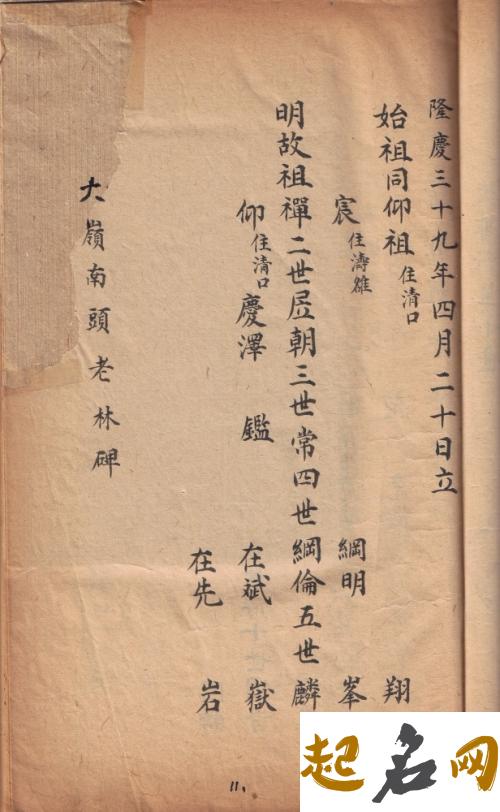 隆慶三十九年四月二十日立
始祖同仰祖 住清口 翔
宸 住濤雒 綱明 峯
明故祖禪二世居朝三世常四世綱倫五世麟
仰 住清口 慶澤 鑑 在斌 嶽
在先 岩
大嶺南頭老林碑
11、
起名网